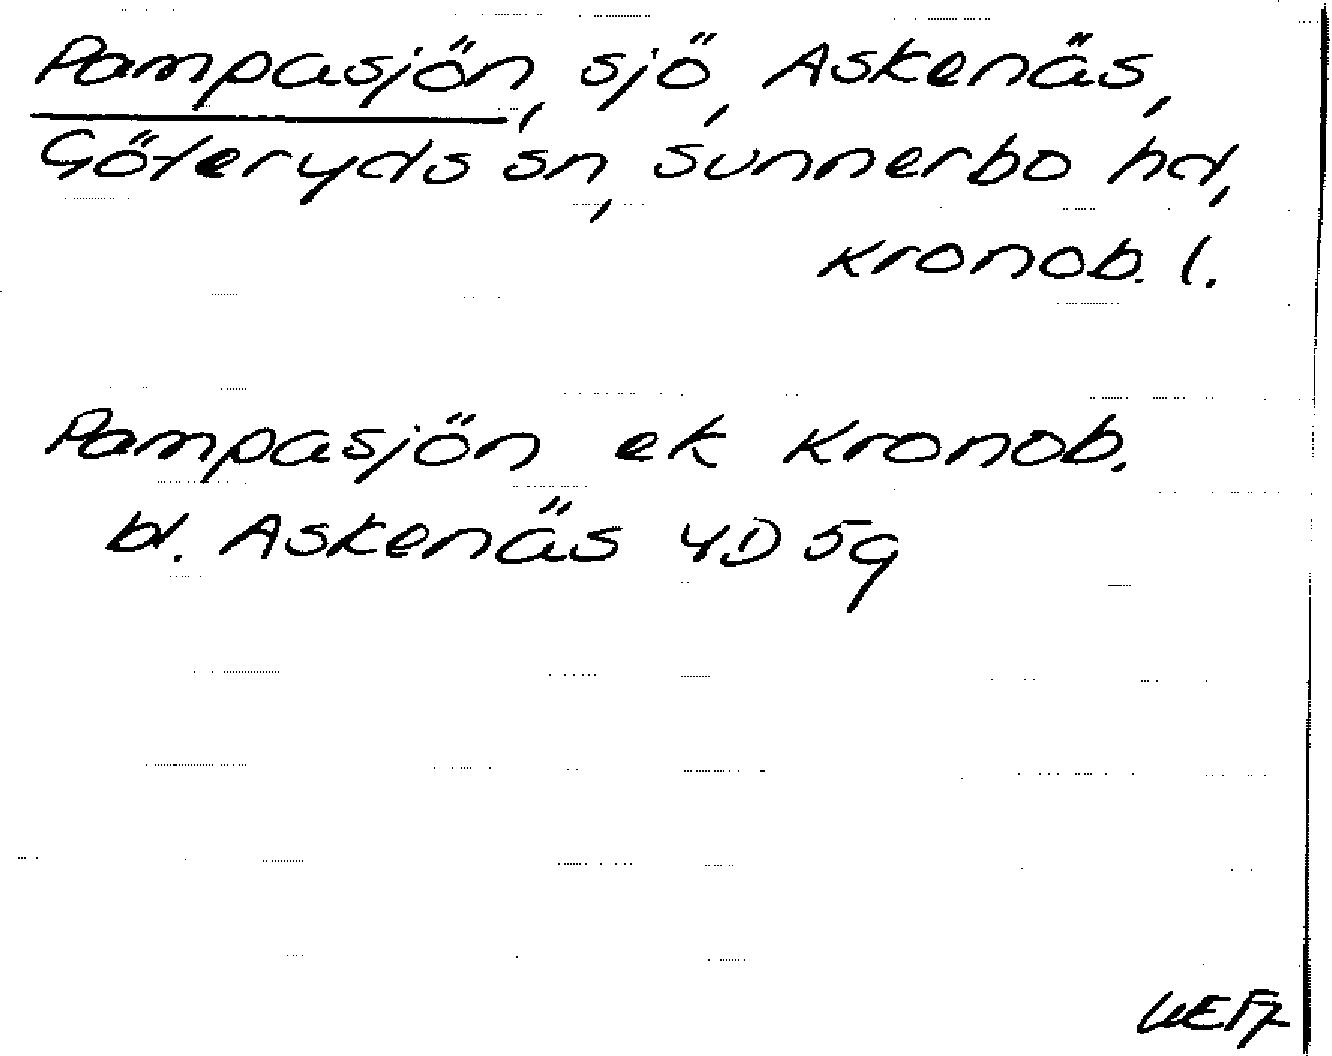 Pampasjön, sjö, Askenäs,
Göteryds sn, Sunnerbo hd,
Kronob. l.
Pampasjön ek Kronob.
bl. Askenäs 4D 5g